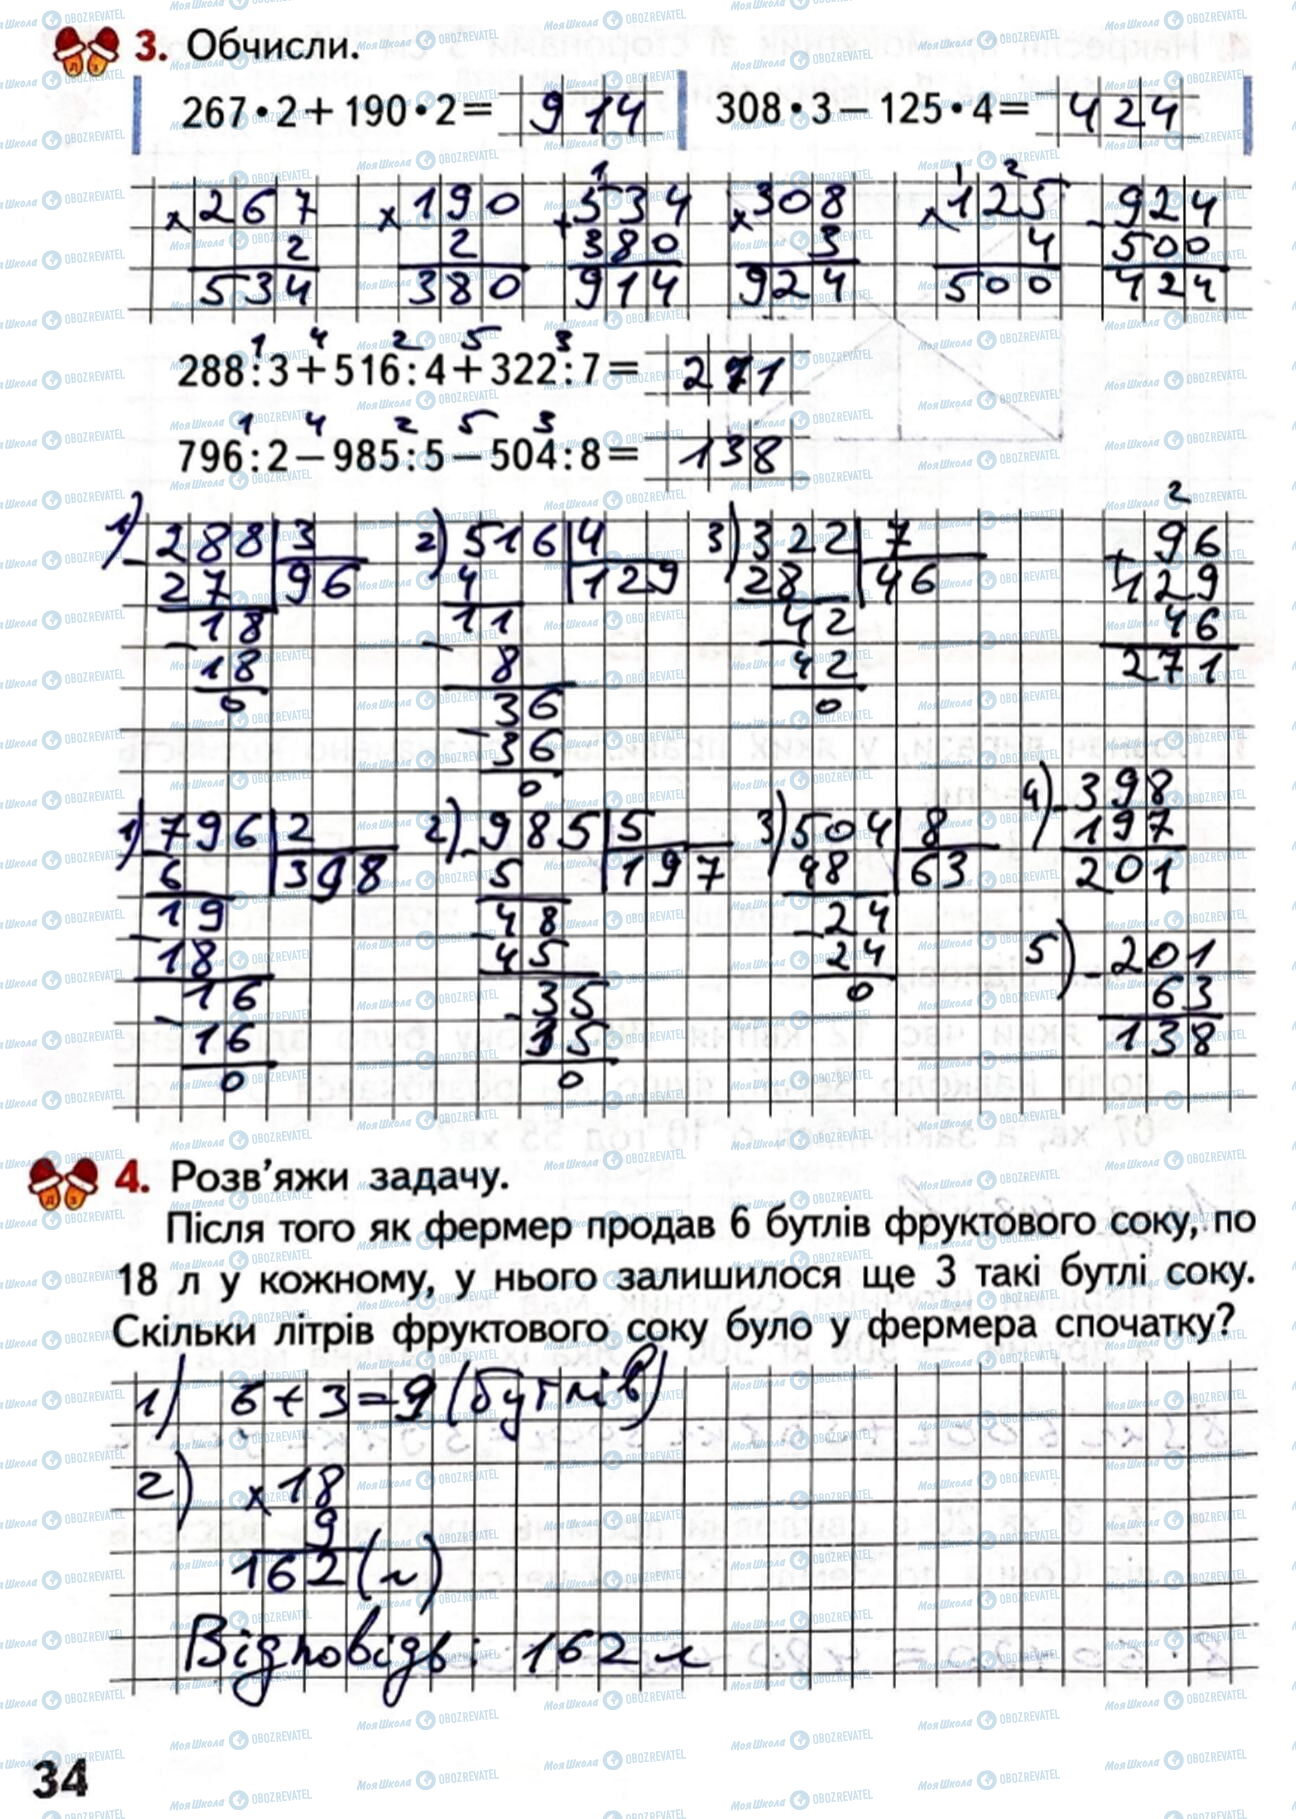 3. Обчисли.
267·2+190·2= 914 308·3−125·4= 424
1 1 2
×267 ×190 +534 ×308 ×125 −924
2 2 380 3 4 500
534 380 914 924 500 424
1 4 2 5 3
288:3+516:4+322:7= 271
1 4 2 5 3
796:2−985:5−504:8= 138
2
1) −288 3 2) 516 4 3) 322 7 96
27 96 4 129 28 46 +129
−18 −11 42 46
18 8 42 271
0 36 0
−36
0
1) −796 2 2) −985 5 3) 504 8 4) −398
6 398 5 197 48 63 197
−19 −48 −24 201
18 45 24 5) −201
−16 −35 0 63
16 35 138
0 0
4. Розв'яжи задачу.
Після того як фермер продав 6 бутлів фруктового соку, по
18 л у кожному, у нього залишилося ще 3 такі бутлі соку.
Скільки літрів фруктового соку було у фермера спочатку?
1) 6+3=9 (бутлів)
2) ×18
9
162 (л)
Відповідь: 162 л
34
МояШкола OBOZREVATEL